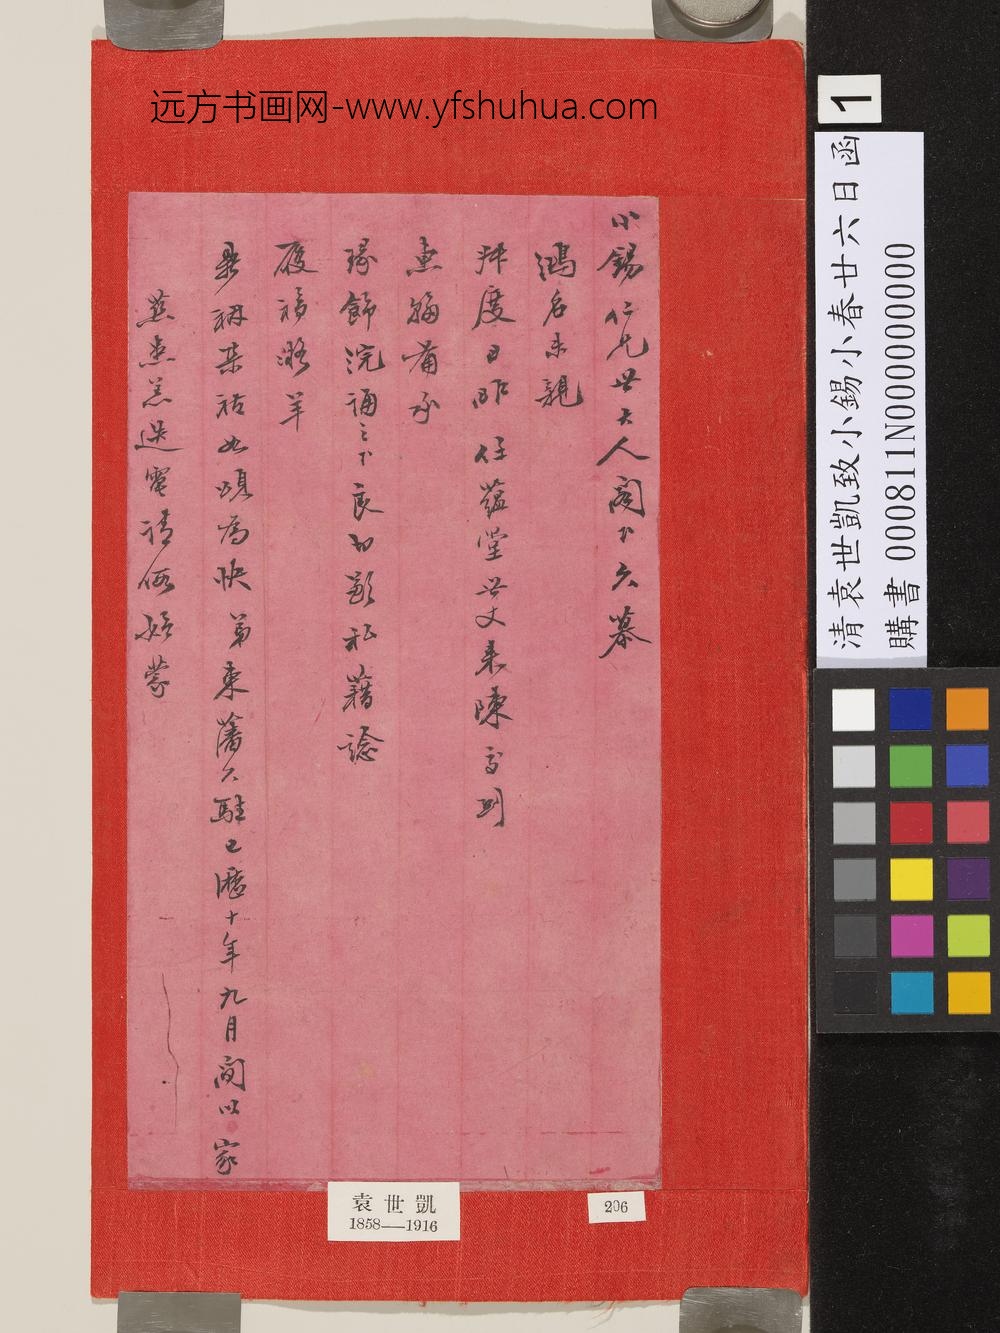 远方书画网-www.yfshuhua.com
小錫仁兄世大人閣下久慕
鴻名未親
拜度日昨任蘊堂世丈來陳手則
惠翰備承
緣飾浣誦之下良切歉私藉諗
履福潞羊
昇祺集祜如頌為快弟東藩久駐已歷十年九月間以家
慈患恙迭電請假始蒙
袁世凱
1858——1916
206
1
清袁世凱致小錫小春廿六日函
購書 000811N000000000